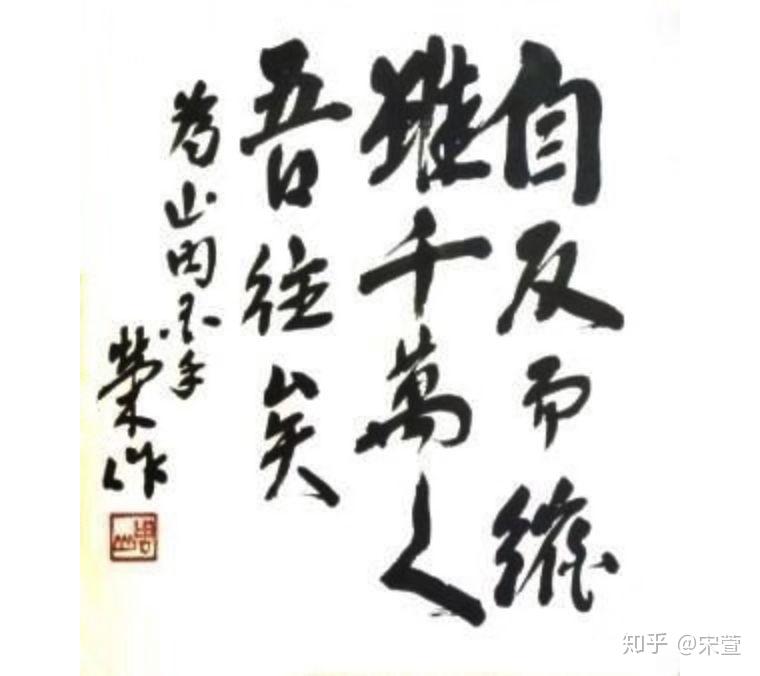 自反而縮
雖千萬人
吾往矣
為山内
榮作
周山
知乎 @宋萱